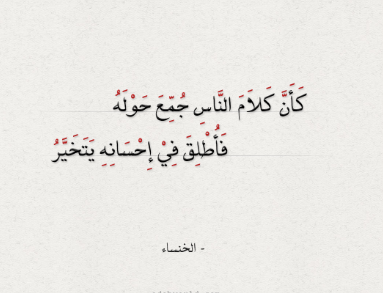 كَأَنَّ كَلَامَ النَّاسِ جُمِّعَ حَوْلَهُ
فَأُطْلِقَ فِيْ إِحْسَانِهِ يَتَخَيَّرُ
- الخنساء